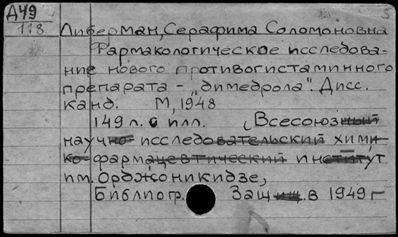 Д49
118
Либерман, Серафима Соломоновна
Фармакологическое исследова-
ние нового противогистаминного
препарата - „димедрола". Дисс.
канд. М, 1948
149 л. с илл. (Всесоюзный
научно-исследовательский хими
ко-фармацевтический институт
им. Орджоникидзе,
Библиогр. Защищ. в 1949 г